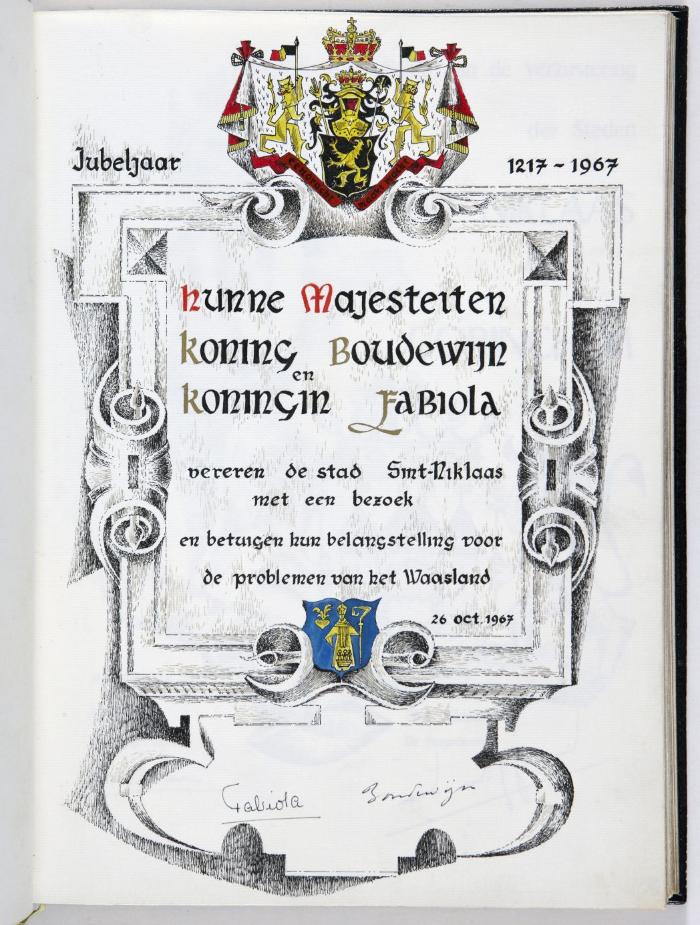 Jubeljaar 1217 - 1967
EENDRACHT MAAKT MACHT
Hunne Majesteiten
Koning Boudewijn
en
Koningin Fabiola
vereren de stad Sint-Niklaas
met een bezoek
en betuigen hun belangstelling voor
de problemen van het Waasland
26 oct. 1967
Fabiola Boudewijn